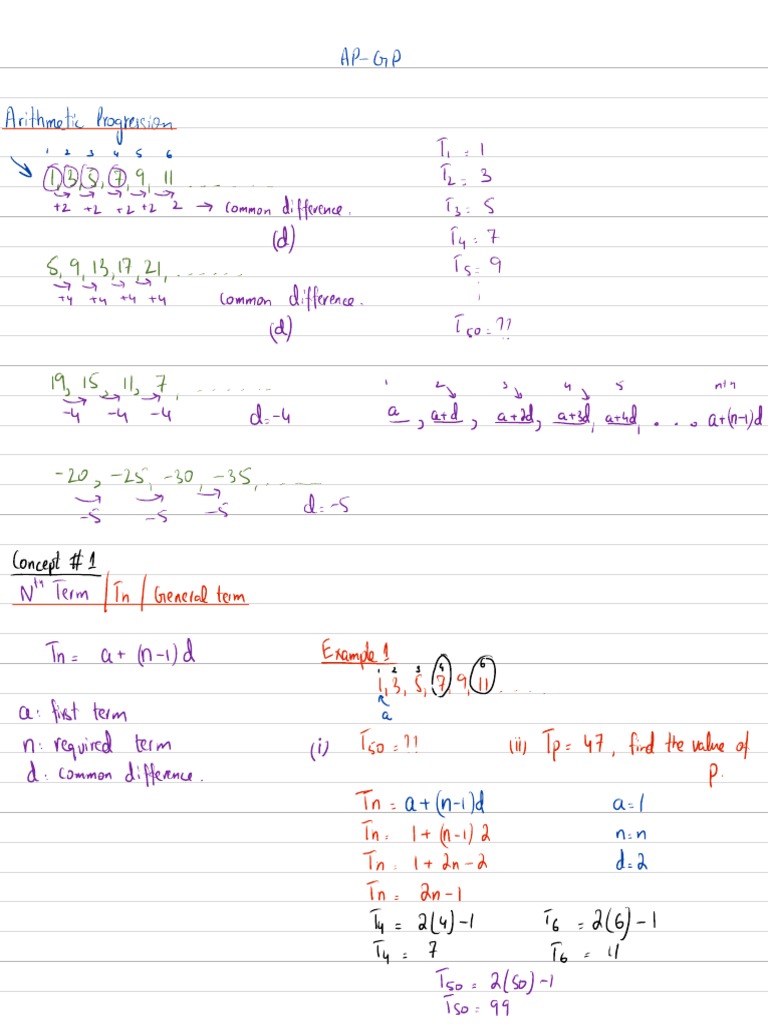 AP-GP
Arithmetic Progression
1 2 3 4 5 6
1, 3, 5, 7, 9, 11 ..........
+2 +2 +2 +2 2 → Common difference.
(d)
T1 = 1
T2 = 3
T3 = 5
T4 = 7
T5 = 9
⋮
T50 = ??
5, 9, 13, 17, 21, .......
+4 +4 +4 +4 Common difference.
(d)
19, 15, 11, 7, ........
-4 -4 -4 d=-4
1 2 3 4 5 nth
a, a+d, a+2d, a+3d, a+4d, . . . , a+(n-1)d
-20, -25, -30, -35, .......
-5 -5 -5 d=-5
Concept #1
Nth Term / Tn / General term
Tn = a + (n-1)d
a: first term
n: required term
d: common difference.
Example 1
1 2 3 4 6
1, 3, 5, 7, 9, 11 .....
a
(i) T50 = ?? (ii) Tp = 47, find the value of
p.
Tn = a+(n-1)d a=1
Tn = 1+(n-1)2 n=n
Tn = 1+2n-2 d=2
Tn = 2n-1
T4 = 2(4)-1 T6 = 2(6)-1
T4 = 7 T6 = 11
T50 = 2(50)-1
T50 = 99